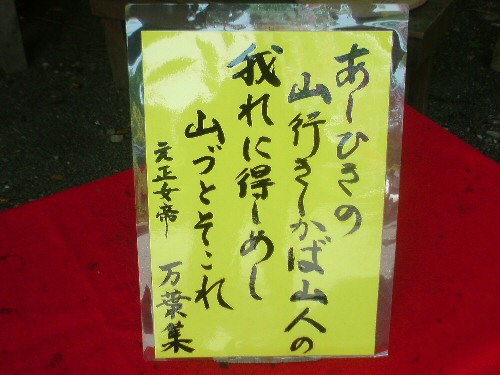 あしひきの
山行きしかば山人の
我れに得しめし
山づとそこれ
元正女帝
万葉集